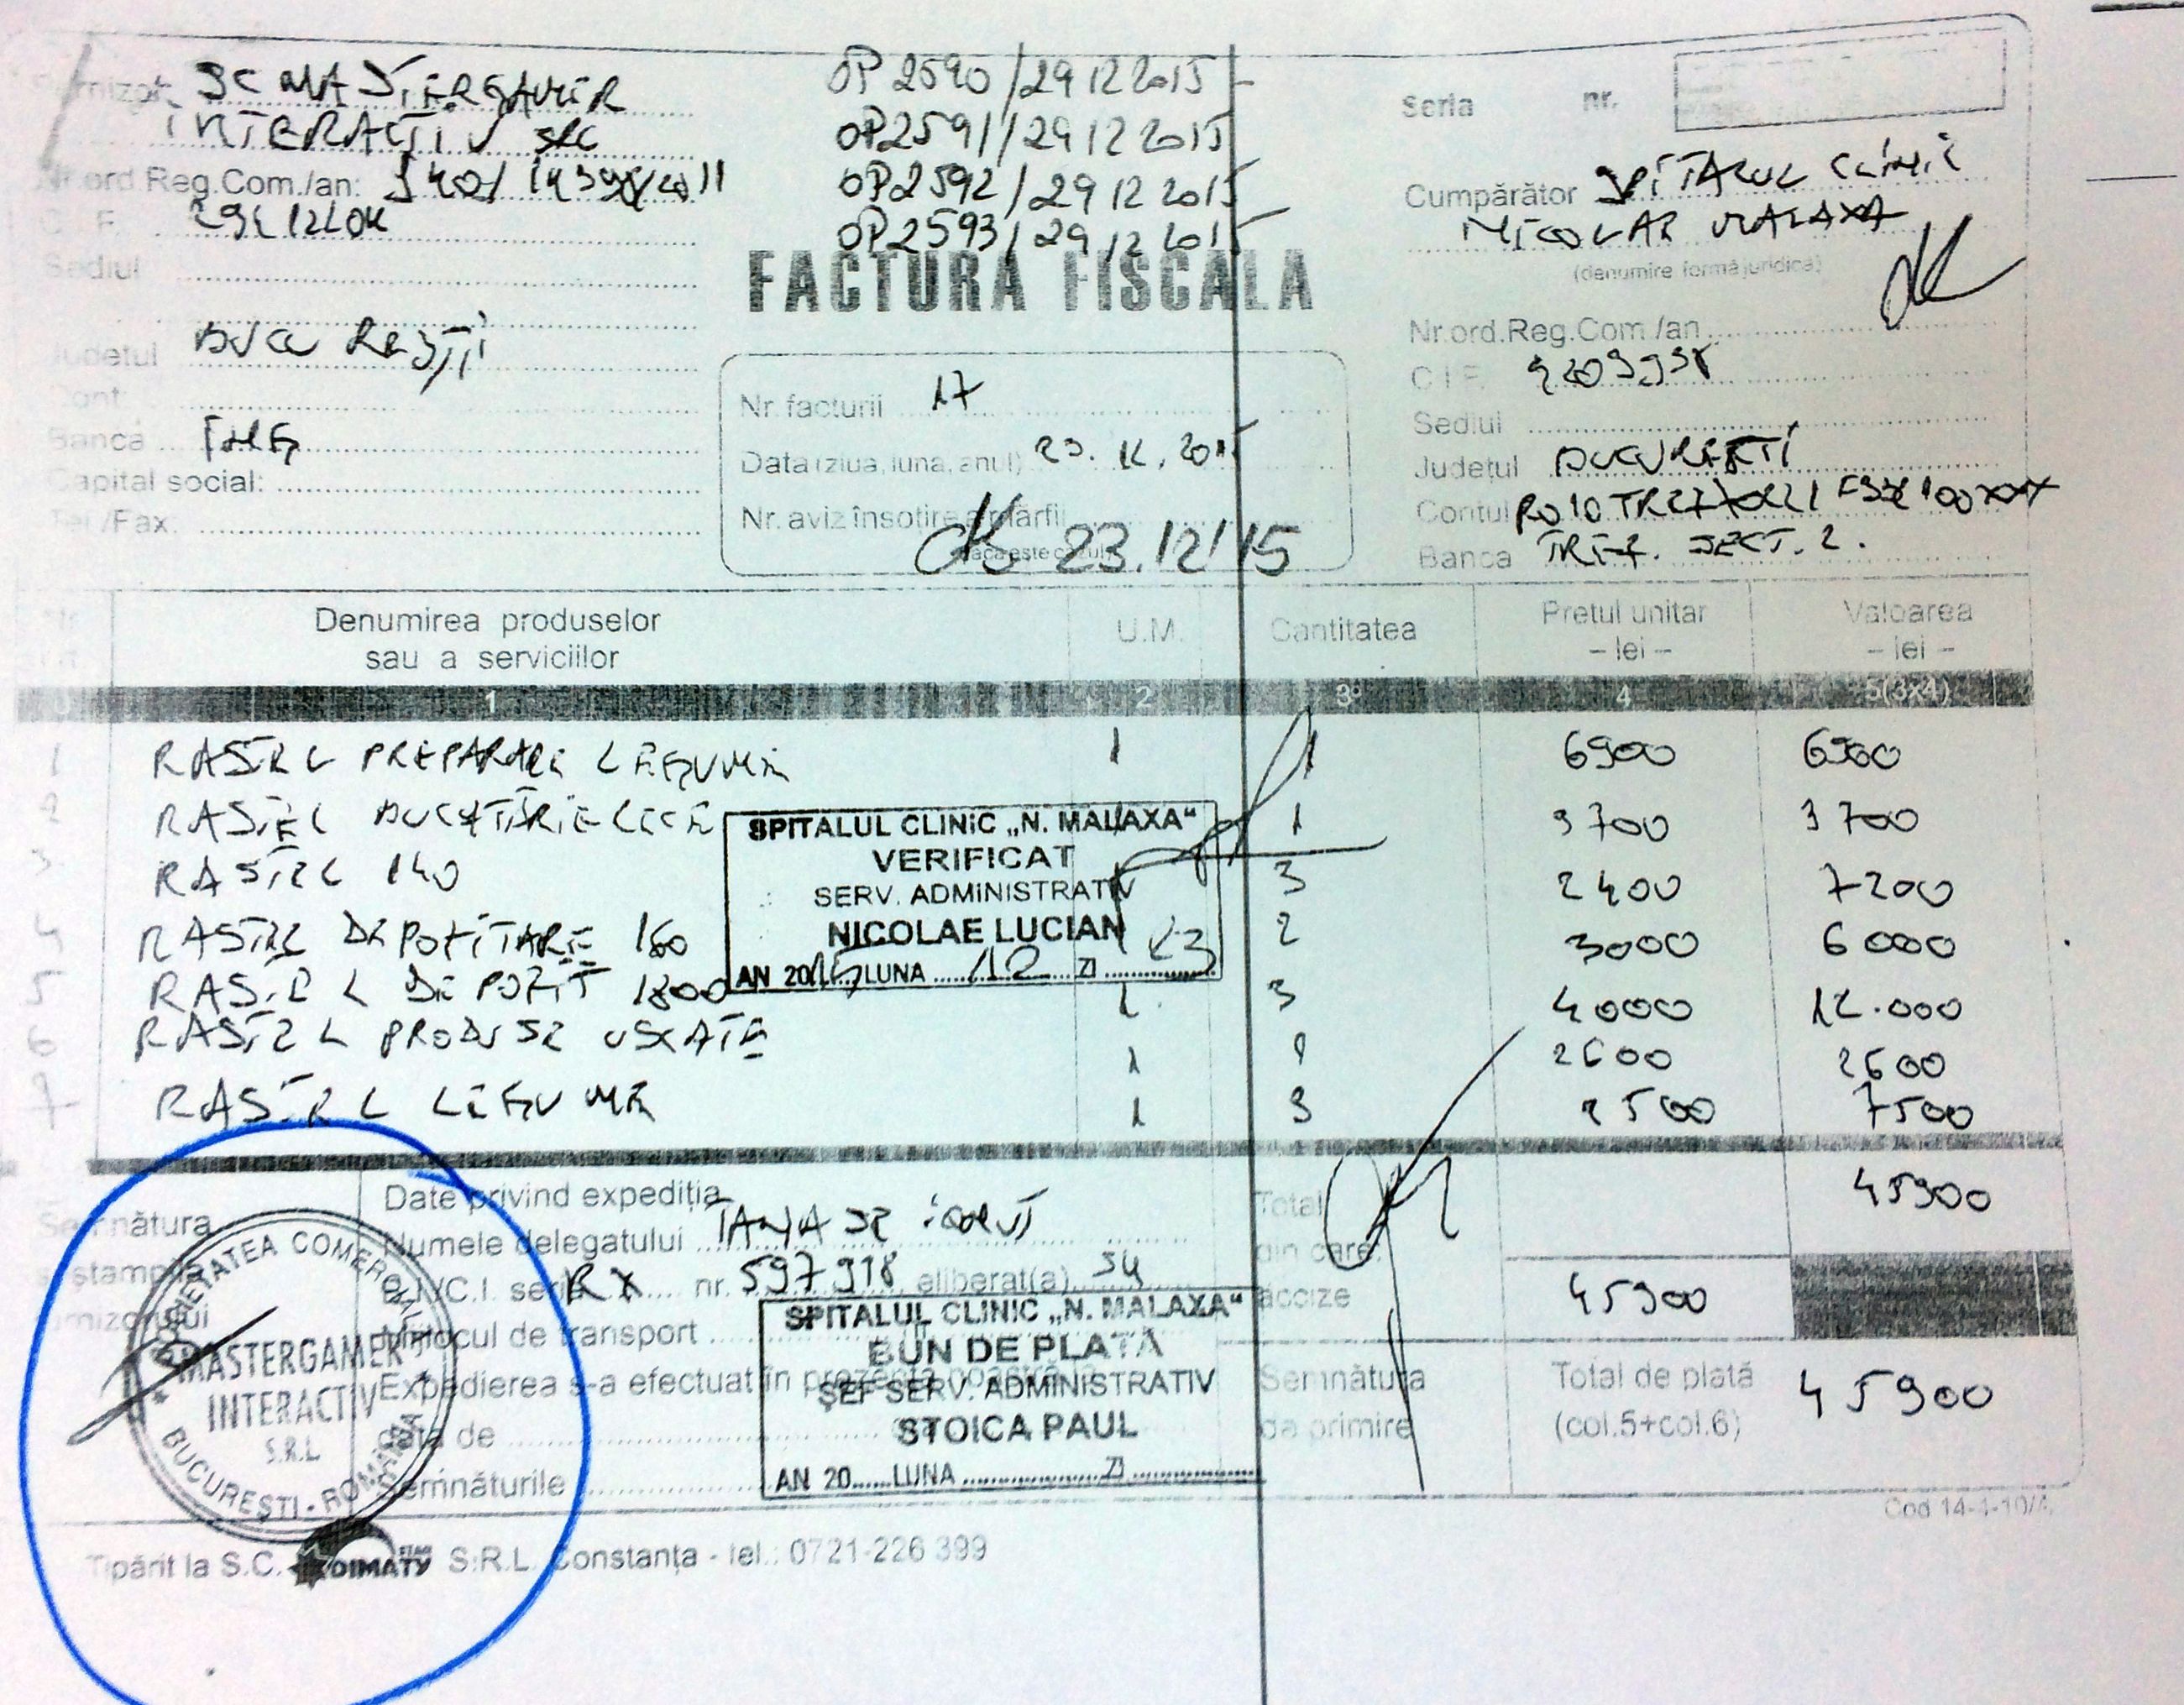 Furnizor SC MASTERGAMER
INTERACTIV SRL
Nr.ord.Reg.Com./an:
C.I.F.
Sediul
Județul BUCUREȘTI
Cont
Banca ING
Capital social:
Tel./Fax:
OP 2590/29 12 2015
OP 2591/29 12 2015
OP 2592/29 12 2015
OP 2593/29 12 2015
FACTURA FISCALA
Nr. facturii 17
Data (ziua, luna, anul) 23. 12. 2015
Nr. aviz însoțire a mărfii
(dacă este cazul)
23.12/15
Seria nr.
Cumpărător SPITALUL CLINIC
NICOLAE MALAXA
(denumire formă juridică)
Nr.ord.Reg.Com./an
C.I.F.
Sediul
Județul BUCUREȘTI
Contul
Banca TREZ. SECT. 2.
Nr. crt. Denumirea produselor sau a serviciilor U.M. Cantitatea Pretul unitar – lei – Valoarea – lei –
0 1 2 3 4 5(3x4)
1 RASTEL PREPARARE LEGUME 1 1 6900 6900
2 RASTEL 1 3700 3700
3 RASTEL 140 3 2400 7200
4 RASTEL DEPOZITARE 160 2 3000 6000
5 RASTEL DEPOZIT 1800 1 3 4000 12.000
6 RASTEL PRODUSE USCATE 1 1 2600 2600
7 RASTEL LEGUME 1 3 2500 7500
SPITALUL CLINIC „N. MALAXA“
VERIFICAT
SERV. ADMINISTRATIV
NICOLAE LUCIAN
AN 2015 LUNA 12 ZI 23
Semnătura
și ștampila
furnizorului
SOCIETATEA COMERCIALĂ
MASTERGAMER
INTERACTIV
S.R.L.
BUCUREȘTI - ROMÂNIA
Date privind expediția
Numele delegatului TANASE IONUT
B.I./C.I. seria RX nr. 597918 eliberat(a)
Mijlocul de transport
Expedierea s-a efectuat în prezența noastră
data de
Semnăturile
SPITALUL CLINIC „N. MALAXA“
BUN DE PLATĂ
ȘEF SERV. ADMINISTRATIV
STOICA PAUL
AN 20 LUNA ZI
Total 45900
din care:
accize 45900
Semnătura
de primire
Total de plată 45900
(col.5+col.6)
Cod 14-4-10/A
Tipărit la S.C. DIMATY STAR S.R.L. Constanța - tel.: 0721-226 399